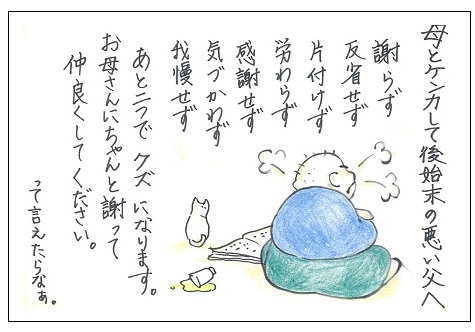 母とケンカして後始末の悪い父へ
謝らず
反省せず
片付けず
労わらず
感謝せず
気づかわず
我慢せず
あと二つで クズ になります。
お母さんにちゃんと謝って
仲良くしてください。
って言えたらなぁ。